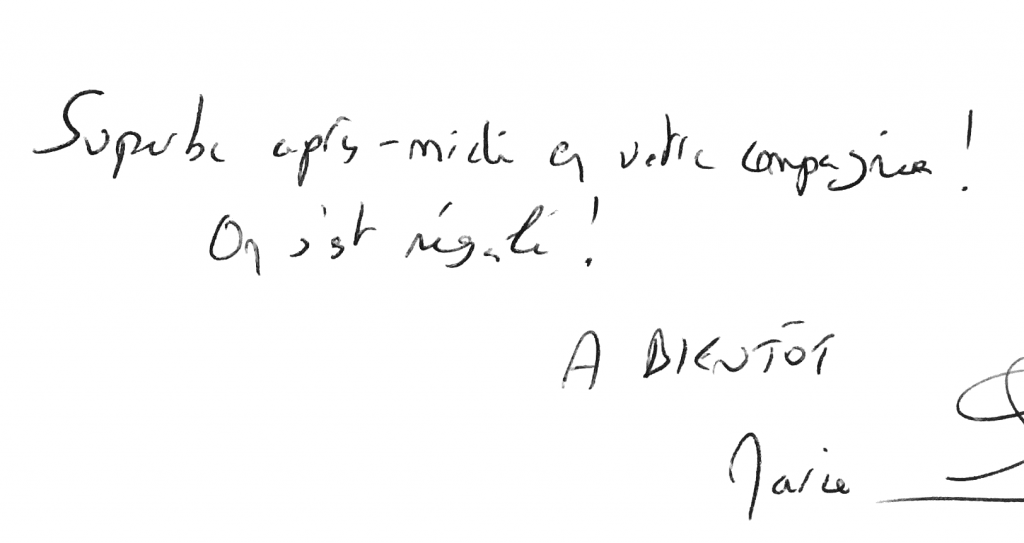 Superbe après-midi en votre compagnie !
On s'est régalé !
A BIENTÔT
Marie